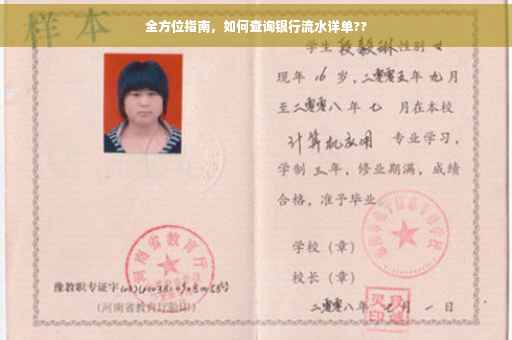 全方位指南，如何查询银行流水详单??
样本
学生段毅琳性别 女
现年 16 岁，二零零五年 九 月
至二零零八年 七 月在本校
计算机应用 专业学习，
学制 三 年，修业期满，成绩
合格，准予毕业
学校（章）
校长（章）
二零零八年 七 月 一 日
河南省教育厅
豫教职专证字
（河南省教育厅验印）